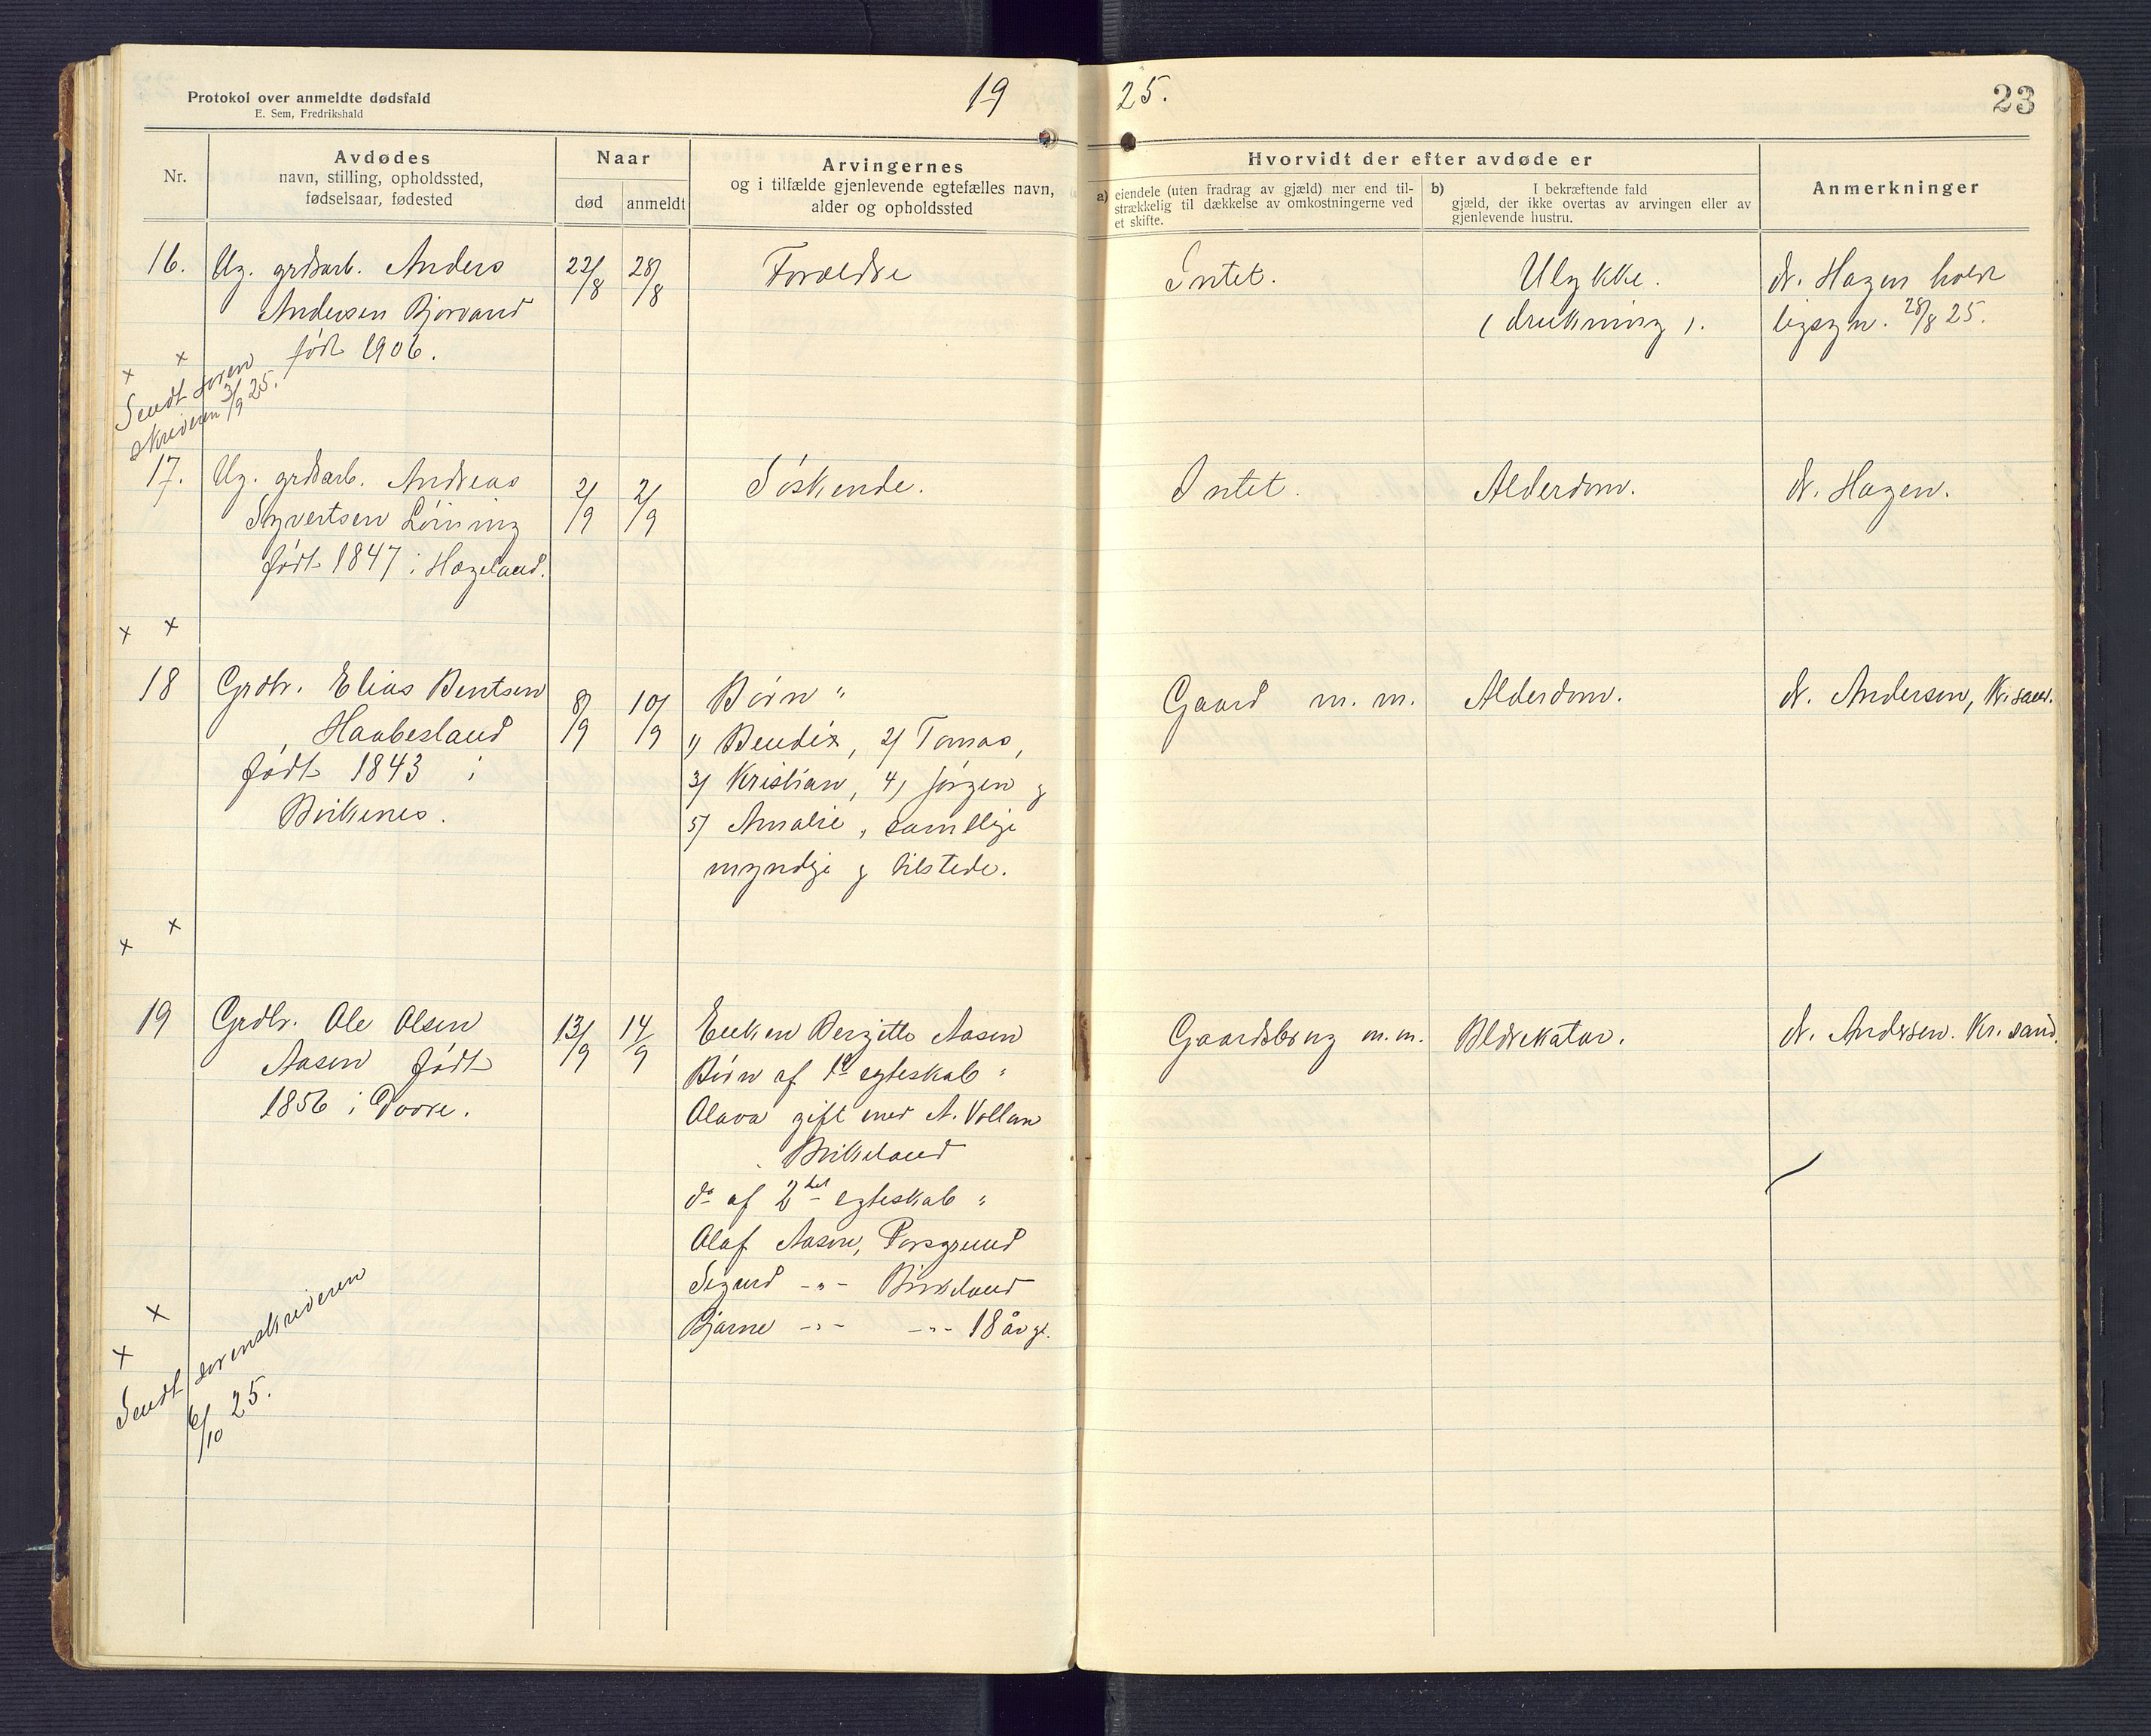 Protokol over anmeldte dødsfald
E. Sem, Fredrikshald
19 25.
23
Nr.
Avdødes
navn, stilling, opholdssted,
fødselsaar, fødested
Naar
død
anmeldt
Arvingernes
og i tilfælde gjenlevende egtefælles navn,
alder og opholdssted
Hvorvidt der efter avdøde er
a) eiendele (uten fradrag av gjæld) mer end til-
strækkelig til dækkelse av omkostningerne ved
et skifte.
b) I bekræftende fald
gjæld, der ikke overtas av arvingen eller av
gjenlevende hustru.
Anmerkninger
16. Ug. grdsarb. Anders
Andersen Bjorvand
født 1906.
22/8
28/8
Forældre
Intet.
Ulykke.
(drukning).
dr. Hagen holdt
ligsyn. 28/8 25.
x x
Sendt soren
skriveren 3/9 25.
17. Ug. grdsarb. Andreas
Syvertsen Lønning
født 1847 i Hægeland.
2/9
2/9
Søskende.
Intet.
Alderdom.
dr. Hagen.
x x
18 Grdbr. Elias Bentsen
Haabesland
født 1843 i
Birkenes.
8/9
10/9
Børn "
1) Bendix, 2) Tomas,
3) Kristian, 4) Jørgen og
5) Amalie, samtlige
myndige og tilstede.
Gaard m. m.
Alderdom.
dr. Andersen, Kr.sand.
x x
19 Grdbr. Ole Olsen
Aasen født
1856 i Vaare.
13/9
14/9
Bergitte Aasen
Børn af 1st egteskab "
Olava gift med A. Vollan
Birkeland
do af 2det egteskab "
Olaf Aasen, Porsgrund
Sigurd -"- Birkeland
Bjarne -"- -"- 18 år gl.
Gaardsbrug m. m.
dr. Andersen. Kr. sand.
x x
Sendt sorenskriveren
6/10 25.